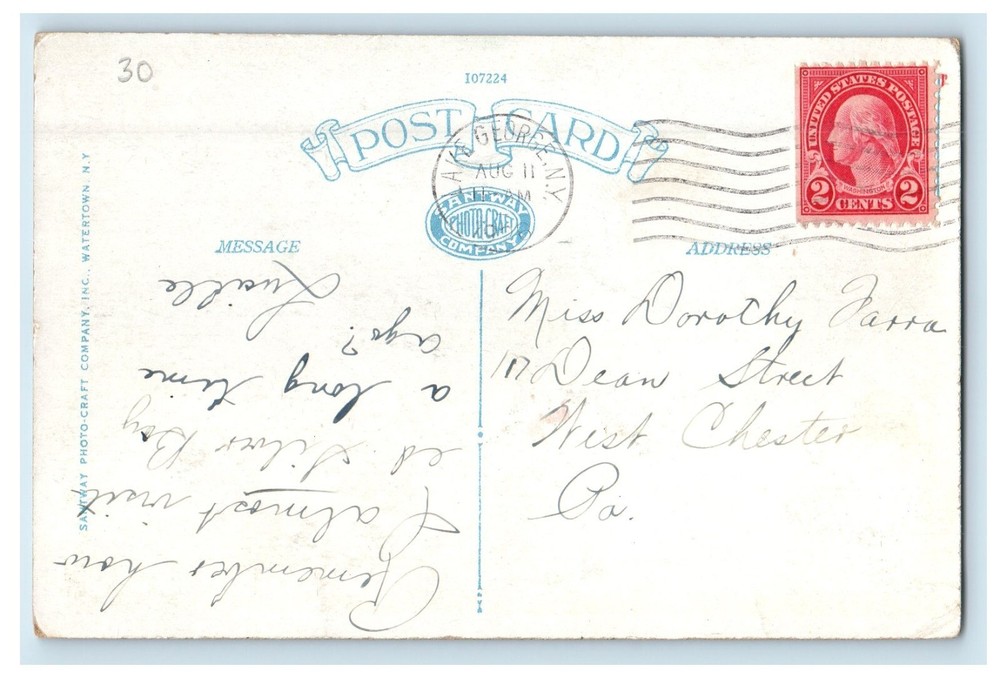 30
107224
POST CARD
LAKE GEORGE, N.Y.
AUG 11
11 AM
SANTWAY
PHOTO-CRAFT
COMPANY.
UNITED STATES POSTAGE
WASHINGTON
2 CENTS 2
MESSAGE
ADDRESS
SANTWAY PHOTO-CRAFT COMPANY, INC., WATERTOWN, N.Y.
Remember how
I almost visit
ed Silver Bay
a long time
ago?
Lucille
Miss Dorothy Farra
117 Dean Street
West Chester
Pa.